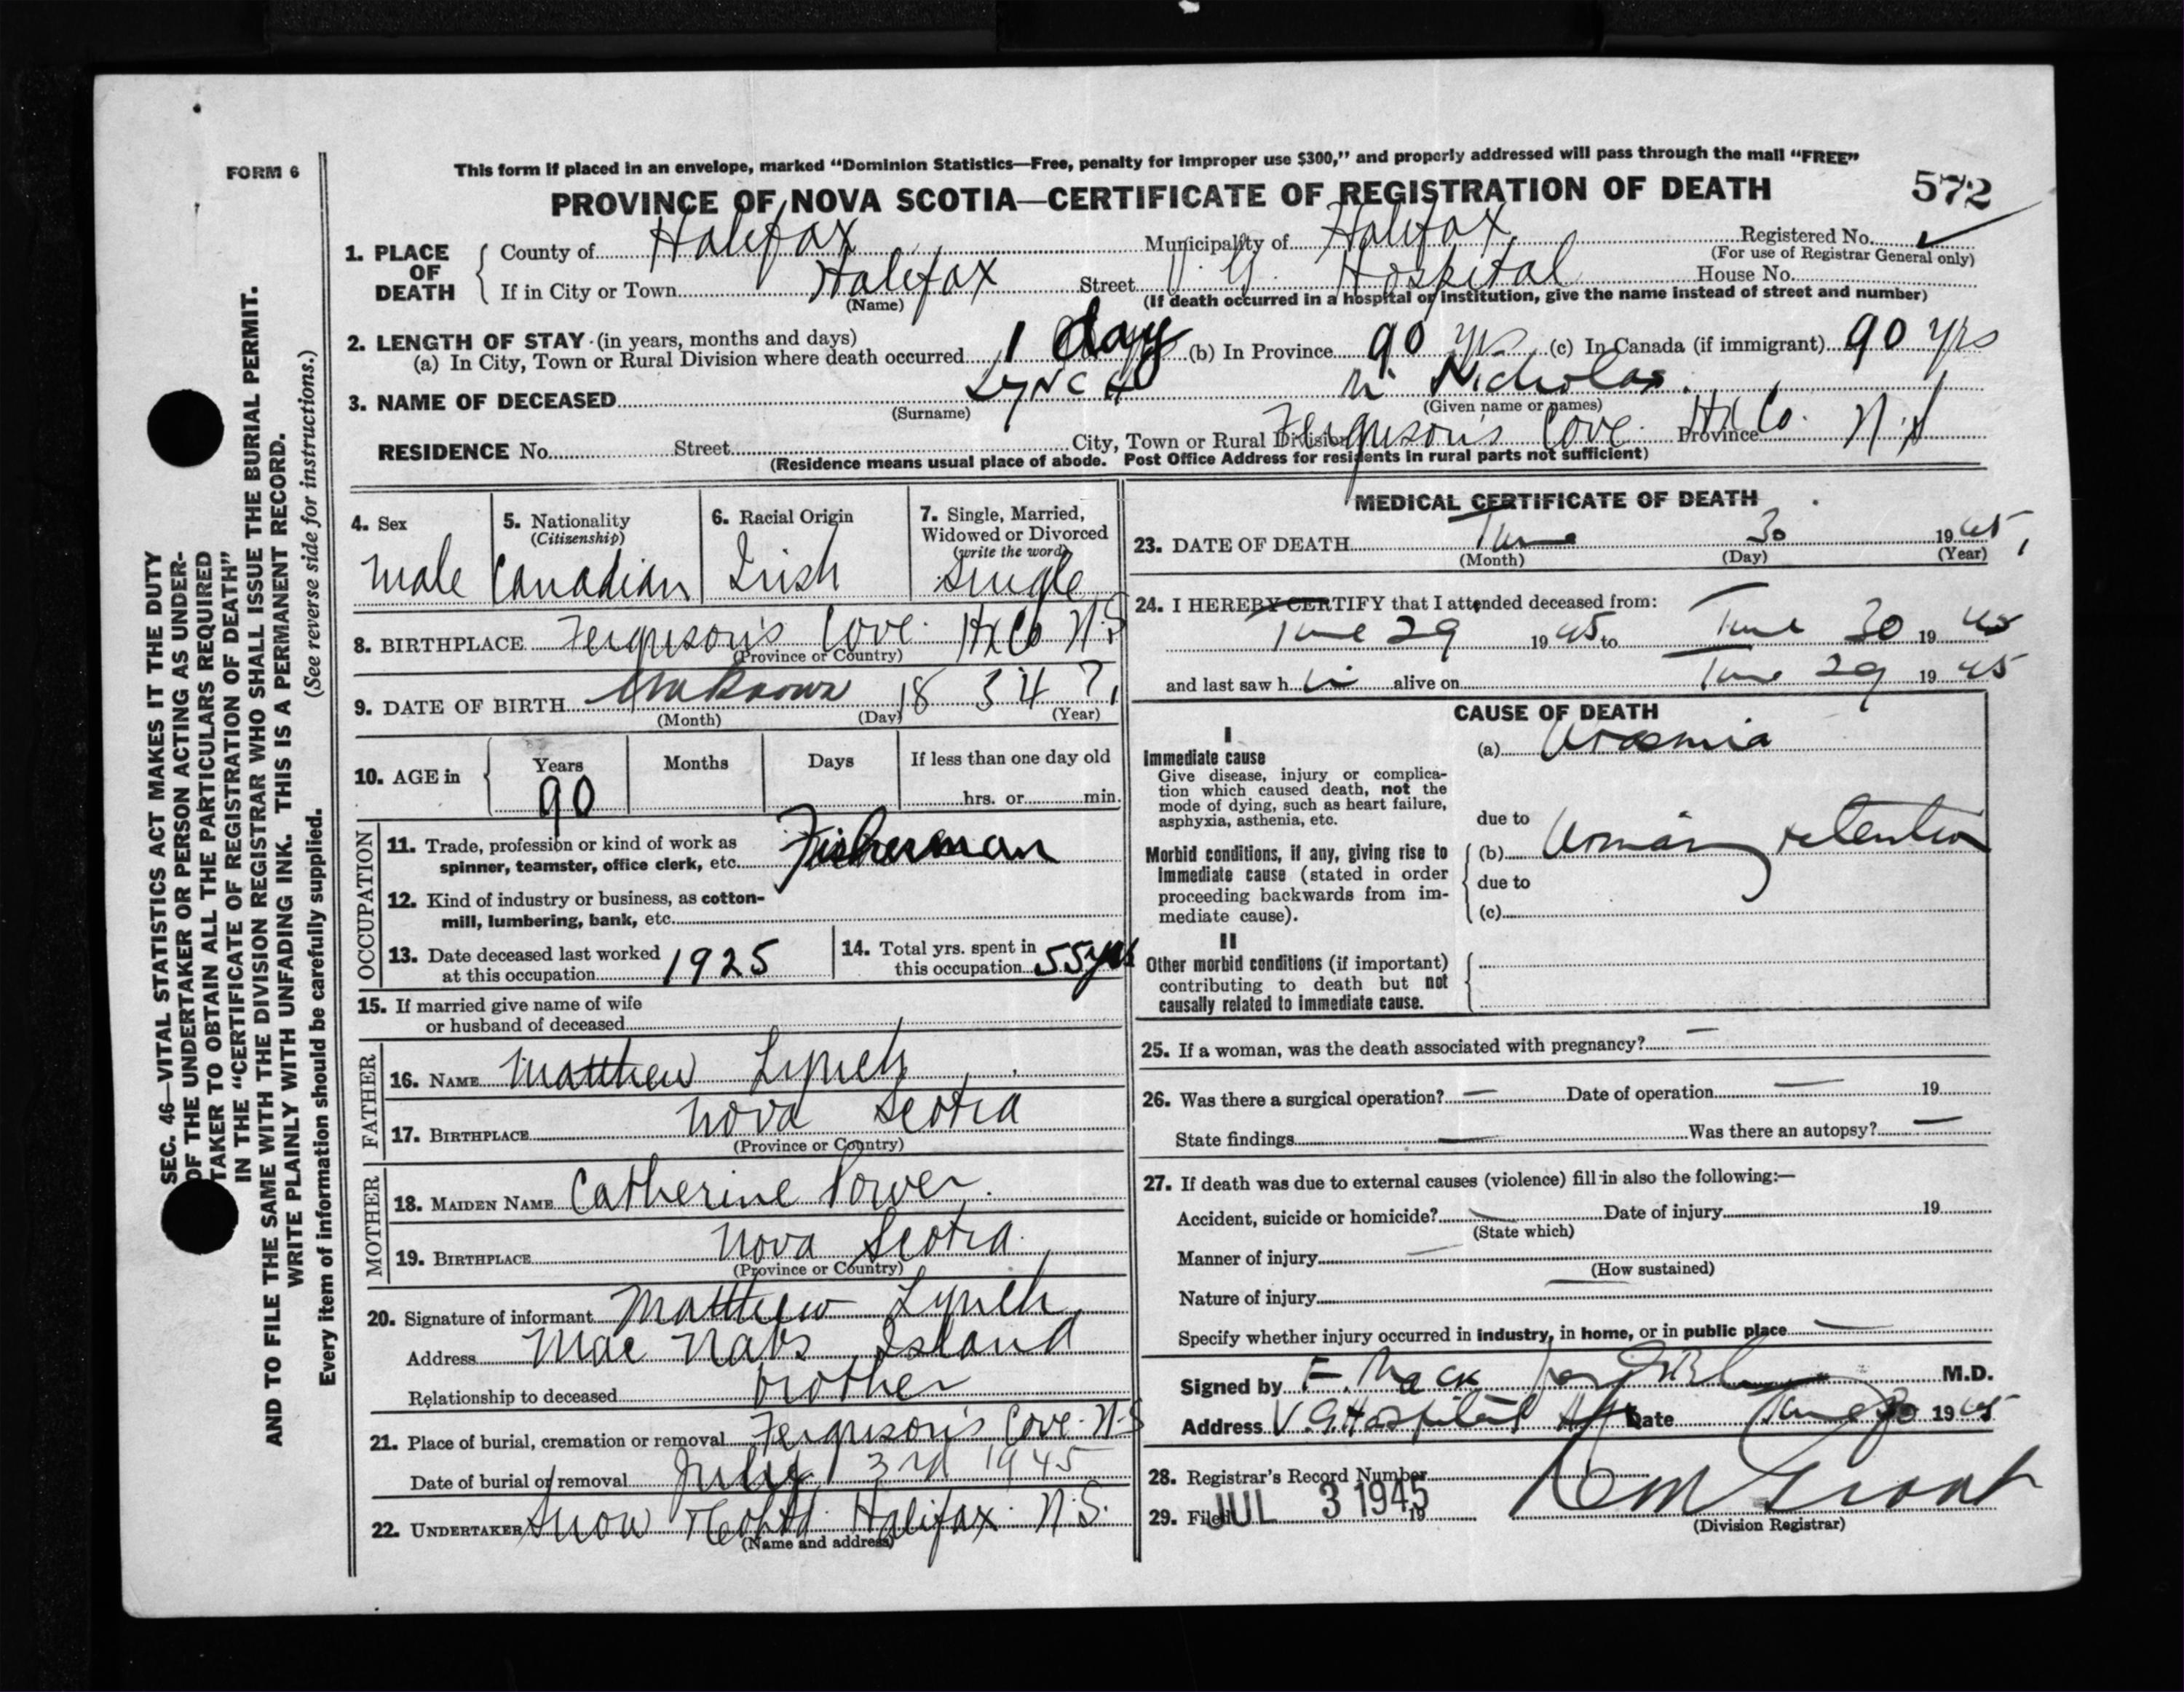 FORM 6
This form if placed in an envelope, marked "Dominion Statistics—Free, penalty for improper use $300," and properly addressed will pass through the mail "FREE"
PROVINCE OF NOVA SCOTIA—CERTIFICATE OF REGISTRATION OF DEATH
572
1. PLACE OF DEATH
County of Halifax Municipality of Halifax Registered No.
(For use of Registrar General only)
If in City or Town Halifax Street V. G. Hospital House No.
(Name) (If death occurred in a hospital or institution, give the name instead of street and number)
2. LENGTH OF STAY (in years, months and days)
(a) In City, Town or Rural Division where death occurred 1 day (b) In Province 90 yrs (c) In Canada (if immigrant) 90 yrs
3. NAME OF DECEASED Lynch Nicholas
(Surname) (Given name or names)
RESIDENCE No. Street City, Town or Rural Division Ferguson's Cove Hx Co. Province N.S
(Residence means usual place of abode. Post Office Address for residents in rural parts not sufficient)
4. Sex
male
5. Nationality
(Citizenship)
Canadian
6. Racial Origin
Irish
7. Single, Married,
Widowed or Divorced
(write the word)
Single
8. BIRTHPLACE Ferguson's Cove Hx Co N.S
(Province or Country)
9. DATE OF BIRTH Unknown 18
(Month) (Day) (Year)
10. AGE in
Years Months Days If less than one day old
90 hrs. or min.
OCCUPATION
11. Trade, profession or kind of work as
spinner, teamster, office clerk, etc. Fisherman
12. Kind of industry or business, as cotton-
mill, lumbering, bank, etc.
13. Date deceased last worked
at this occupation 1925
14. Total yrs. spent in
this occupation 55 yrs
15. If married give name of wife
or husband of deceased
FATHER
16. NAME Matthew Lynch
17. BIRTHPLACE Nova Scotia
(Province or Country)
MOTHER
18. MAIDEN NAME Catherine Power
19. BIRTHPLACE Nova Scotia
(Province or Country)
20. Signature of informant Matthew Lynch
Address Mac Nabs Island
Relationship to deceased brother
21. Place of burial, cremation or removal Ferguson's Cove N.S
Date of burial or removal July 3rd 1945
22. UNDERTAKER Snow & Co Ltd Halifax N.S.
(Name and address)
MEDICAL CERTIFICATE OF DEATH
23. DATE OF DEATH June 30 1945
(Month) (Day) (Year)
24. I HEREBY CERTIFY that I attended deceased from:
June 29 1945 to June 30 1945
and last saw h alive on June 29 1945
CAUSE OF DEATH
I
Immediate cause
Give disease, injury or complica-
tion which caused death, not the
mode of dying, such as heart failure,
asphyxia, asthenia, etc.
(a) Uraemia
due to
Morbid conditions, if any, giving rise to
immediate cause (stated in order
proceeding backwards from im-
mediate cause).
(b) Urinary retention
due to
(c)
II
Other morbid conditions (if important)
contributing to death but not
causally related to immediate cause.
25. If a woman, was the death associated with pregnancy? —
26. Was there a surgical operation? — Date of operation — 19
State findings — Was there an autopsy? —
27. If death was due to external causes (violence) fill in also the following:—
Accident, suicide or homicide? — Date of injury 19
(State which)
Manner of injury —
(How sustained)
Nature of injury —
Specify whether injury occurred in industry, in home, or in public place —
Signed by F. Mack for M.D.
Address V. G. Hospital Date June 30 1945
28. Registrar's Record Number
29. Filed JUL 3 1945 19
(Division Registrar)
SEC. 46—VITAL STATISTICS ACT MAKES IT THE DUTY
OF THE UNDERTAKER OR PERSON ACTING AS UNDER-
TAKER TO OBTAIN ALL THE PARTICULARS REQUIRED
IN THE "CERTIFICATE OF REGISTRATION OF DEATH"
AND TO FILE THE SAME WITH THE DIVISION REGISTRAR WHO SHALL ISSUE THE BURIAL PERMIT.
WRITE PLAINLY WITH UNFADING INK. THIS IS A PERMANENT RECORD.
Every item of information should be carefully supplied. (See reverse side for instructions.)